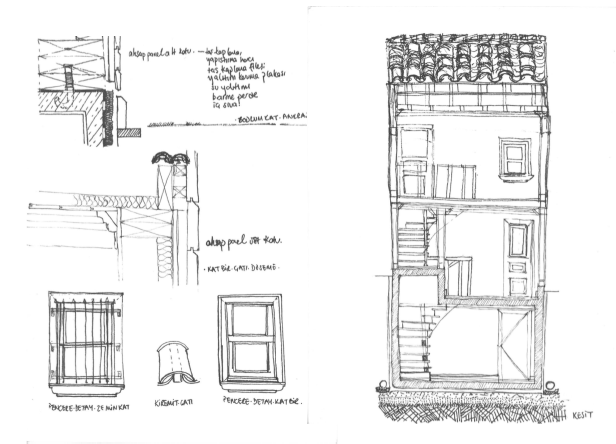 ahşap panel alt kotu. — taş kaplama,
yapıştırma harcı
taş kaplama fileli
yalıtım koruma plakası
su yalıtımı
betonarme perde
iç sıva.
· BODRUM KAT · ANKRAJ
ahşap panel üst kotu.
· KAT BİR · ÇATI · DÖŞEME ·
PENCERE · DETAY · ZEMİN KAT
KİREMİT · ÇATI
PENCERE · DETAY · KAT BİR ·
KESİT